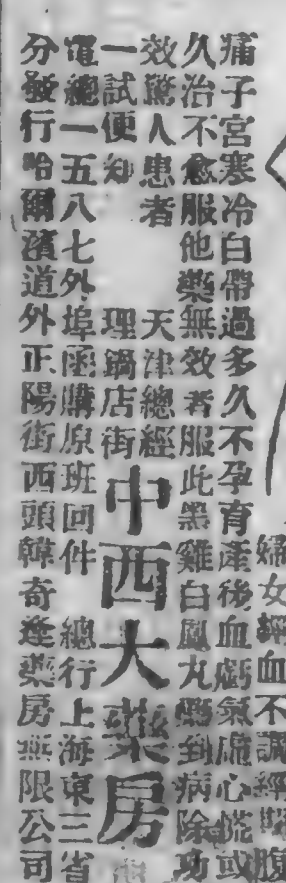 婦女經血不調經期腹
痛子宮寒冷白帶過多久不孕育產後血虧氣虛心慌或
久治不愈服他藥無效者服此黑雞白鳳丸藥到病除功
效驚人患者
一試便知
天津總經
理鍋店街
中西大藥房
電總一五八七外埠函購原班回件
總行上海東三省
分發行哈爾濱道外正陽街西頭韓奇逢藥房無限公司